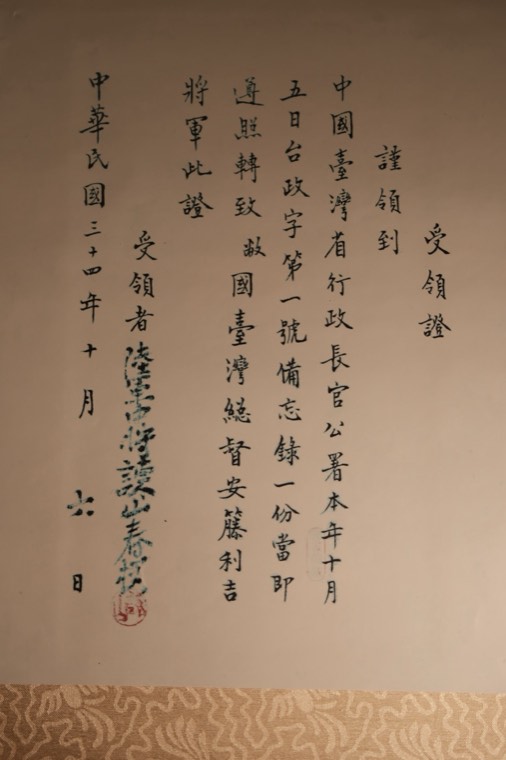 受領證
謹領到
中國臺灣省行政長官公署本年十月
五日台政字第一號備忘錄一份當即
遵照轉致 敝國臺灣總督安藤利吉
將軍此證
受領者 陸軍中將諫山春樹
中華民國三十四年十月 六 日